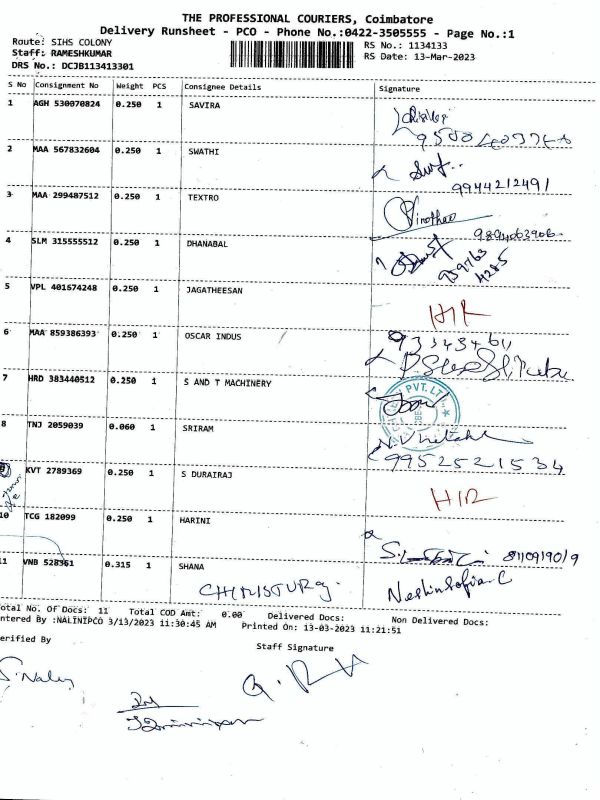 THE PROFESSIONAL COURIERS, Coimbatore
Delivery Runsheet - PCO - Phone No.:0422-3505555 - Page No.:1
Route: SIHS COLONY
RS No.: 1134133
Staff: RAMESHKUMAR
RS Date: 13-Mar-2023
DRS No.: DCJB113413301
S No Consignment No Weight PCS Consignee Details Signature
1 AGH 530070824 0.250 1 SAVIRA
2 MAA 567832604 0.250 1 SWATHI
9944212491
3 MAA 299487512 0.250 1 TEXTRO
9894063906
4 SLM 315555512 0.250 1 DHANABAL
959763
4285
5 VPL 401674248 0.250 1 JAGATHEESAN
H1R
6 MAA 859386393 0.250 1 OSCAR INDUS
7 HRD 383440512 0.250 1 S AND T MACHINERY
PVT. LT
8 TNJ 2059039 0.060 1 SRIRAM
9952521534
KVT 2789369 0.250 1 S DURAIRAJ
H1R
10 TCG 182099 0.250 1 HARINI
11 VNB 528361 0.315 1 SHANA
Neslin Sofia. C
otal No. Of Docs: 11 Total COD Amt: 0.00 Delivered Docs: Non Delivered Docs:
ntered By :NALINIPCO 3/13/2023 11:30:45 AM Printed On: 13-03-2023 11:21:51
erified By
Staff Signature